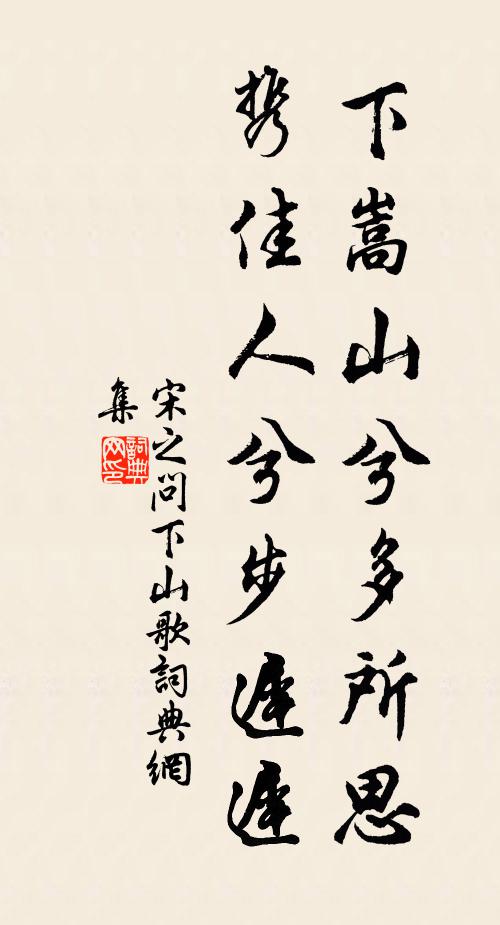 下嵩山兮多所思
攜佳人兮步遲遲
宋之問下山歌詞典網
集
詞典網印